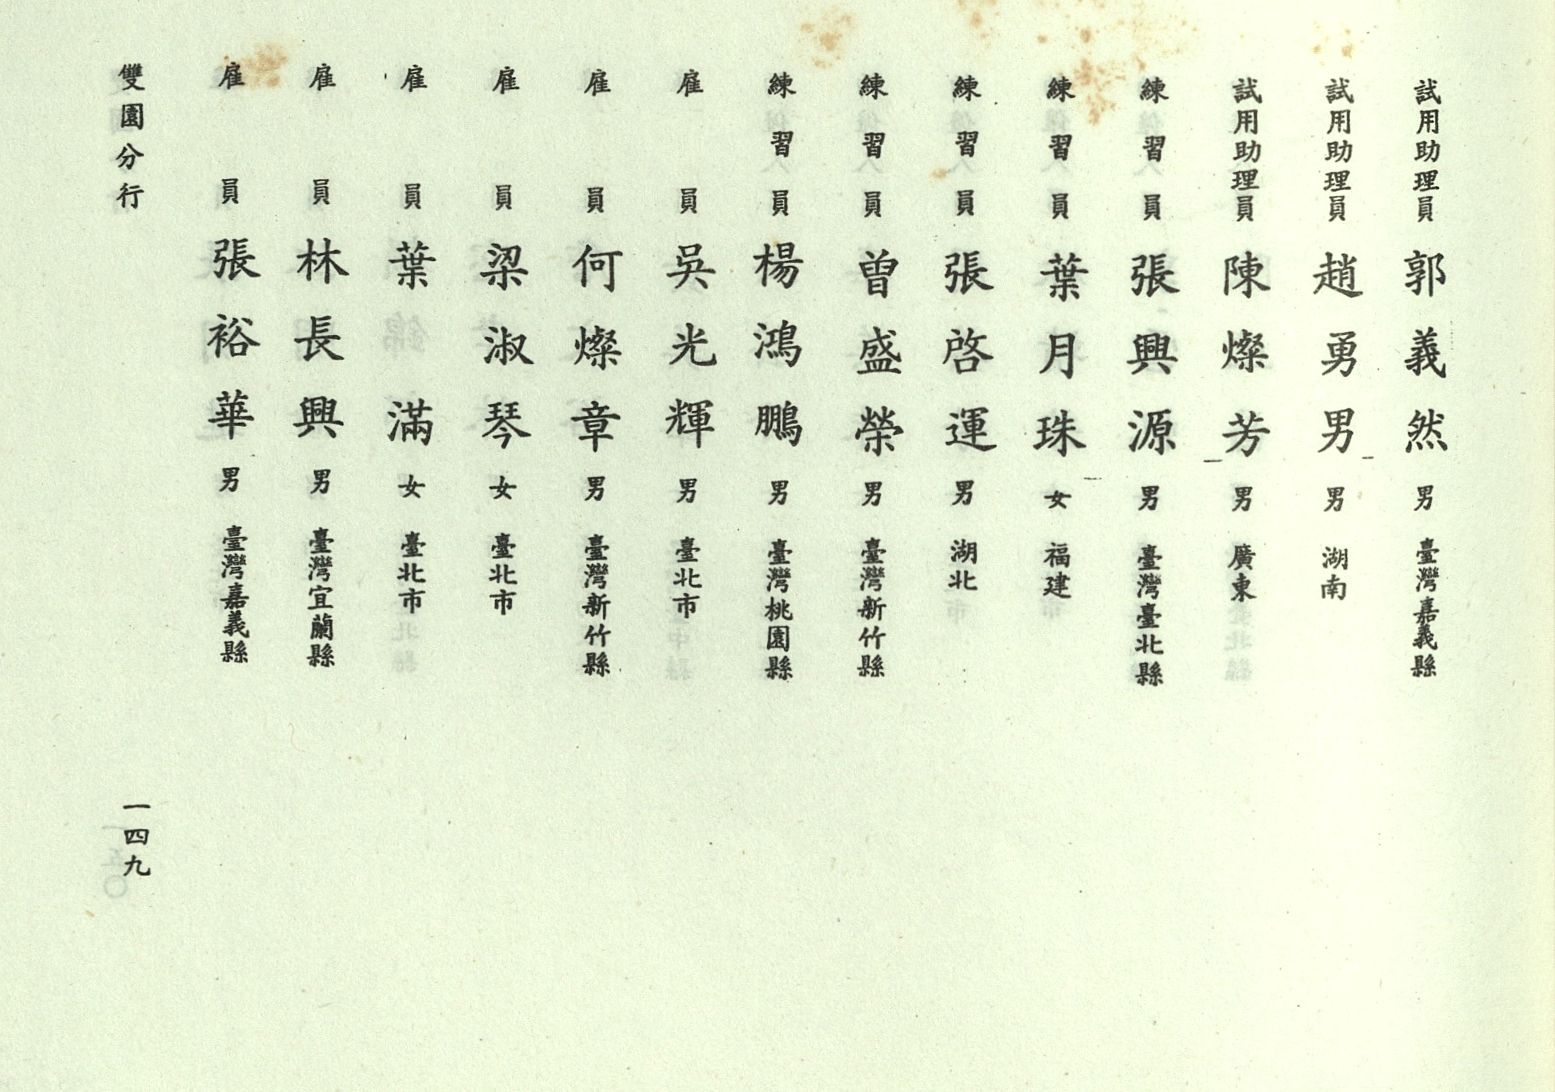 試用助理員 郭義然 男 臺灣嘉義縣
試用助理員 趙勇男 男 湖南
試用助理員 陳燦芳 男 廣東
練習員 張興源 男 臺灣臺北縣
練習員 葉月珠 女 福建
練習員 張啓運 男 湖北
練習員 曾盛榮 男 臺灣新竹縣
練習員 楊鴻鵬 男 臺灣桃園縣
雇員 吳光輝 男 臺北市
雇員 何燦章 男 臺灣新竹縣
雇員 梁淑琴 女 臺北市
雇員 葉滿 女 臺北市
雇員 林長興 男 臺灣宜蘭縣
雇員 張裕華 男 臺灣嘉義縣
雙園分行
一四九